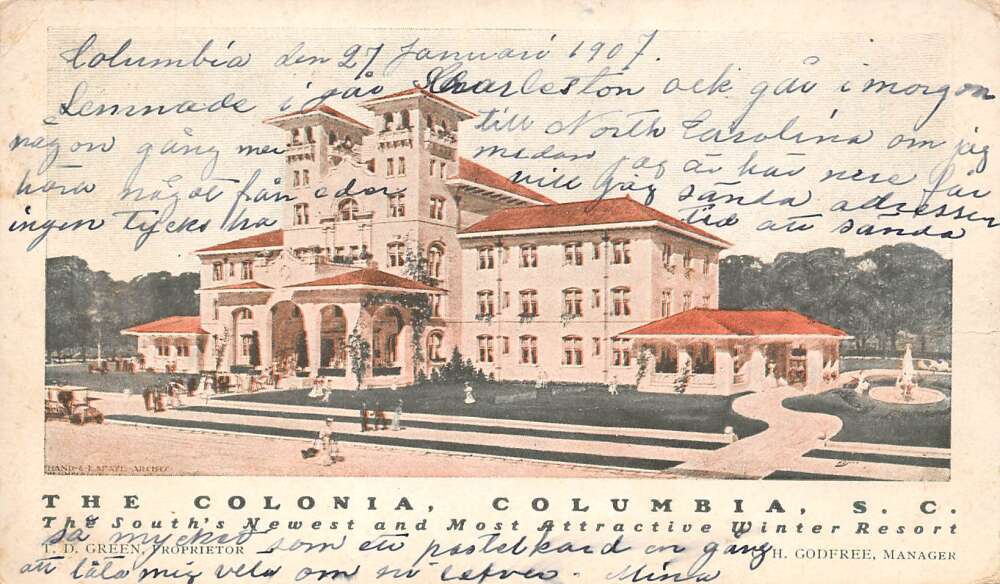 Columbia den 27 Januari 1907.
Lemnade i går Charleston och går i morgon
någon gång till North Carolina om jag
medan jag är här nere får
höra något från eder vill jag sända adressen
ingen tycks ha tid att sända
HAND & LAFAYE ARCHTS
THE COLONIA, COLUMBIA, S. C.
The South's Newest and Most Attractive Winter Resort
så mycket som ett postelkard en gång
T. D. GREEN, PROPRIETOR H. GODFREE, MANAGER
att låta mig veta om ni lefver. Mina